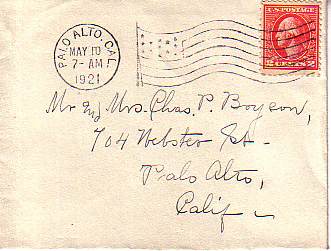 PALO ALTO, CAL.
MAY 10
7-AM
1921
U.S. POSTAGE
2 CENTS 2
Mr and Mrs. Chas. P. Boyson,
704 Webster St.
Palo Alto,
Calif